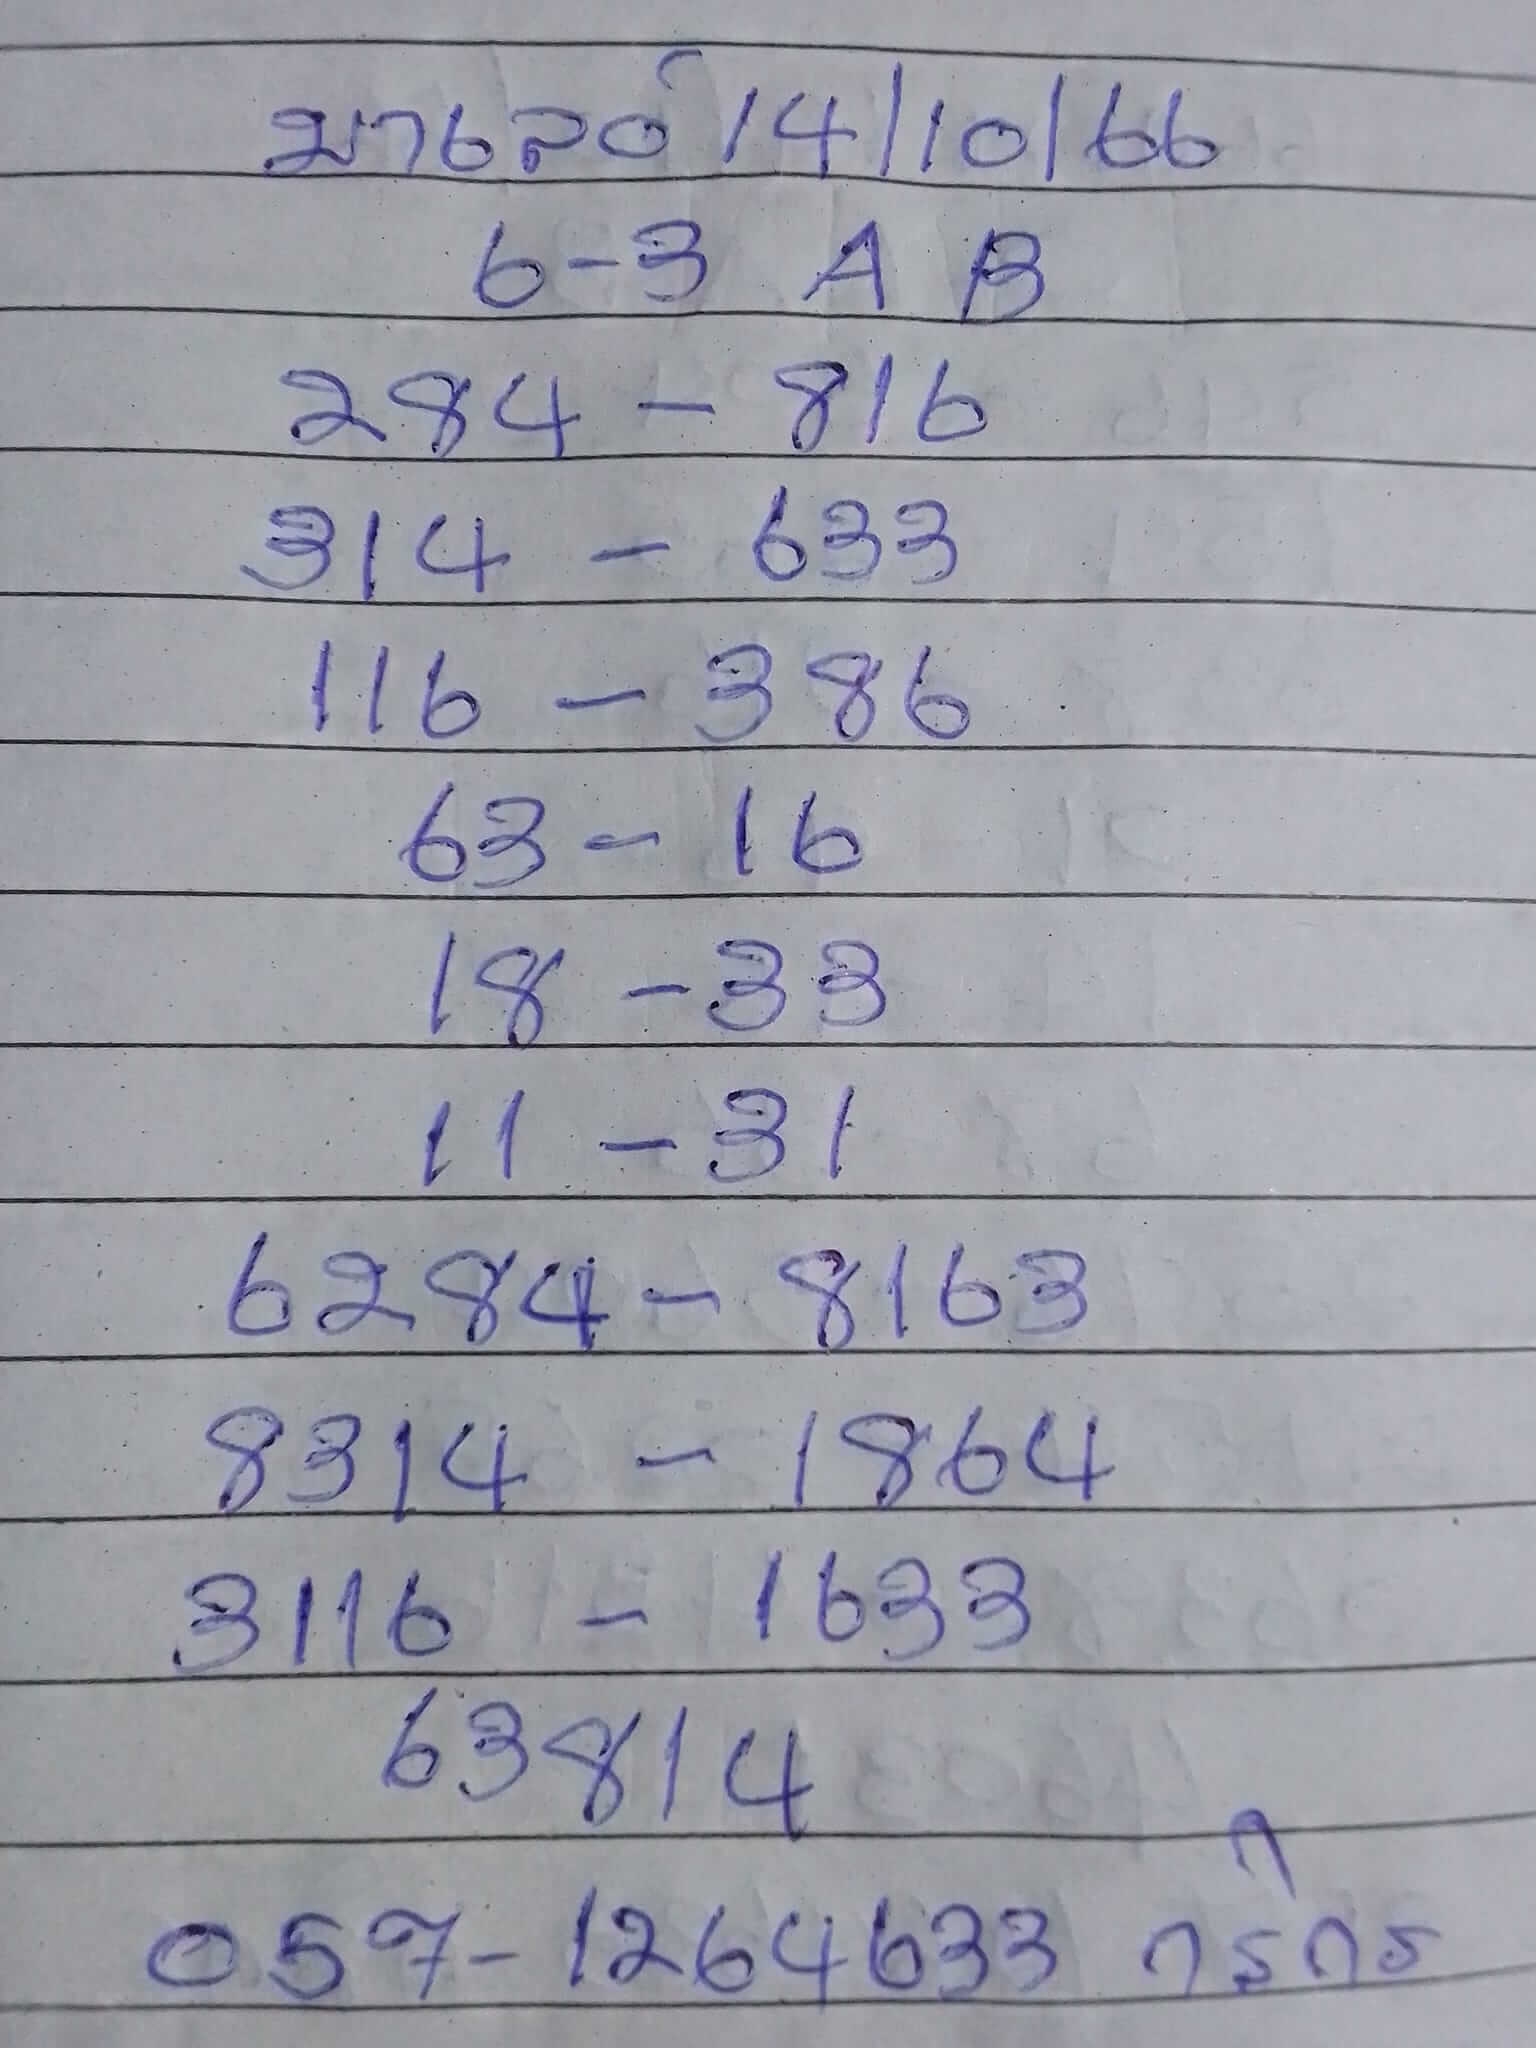 มาเลย์ 14/10/66
6-3 A B
284 - 816
314 - 633
116 - 386
63 - 16
18 - 33
11 - 31
6284 - 8163
8314 - 1864
3116 - 1633
63814
057-1264633